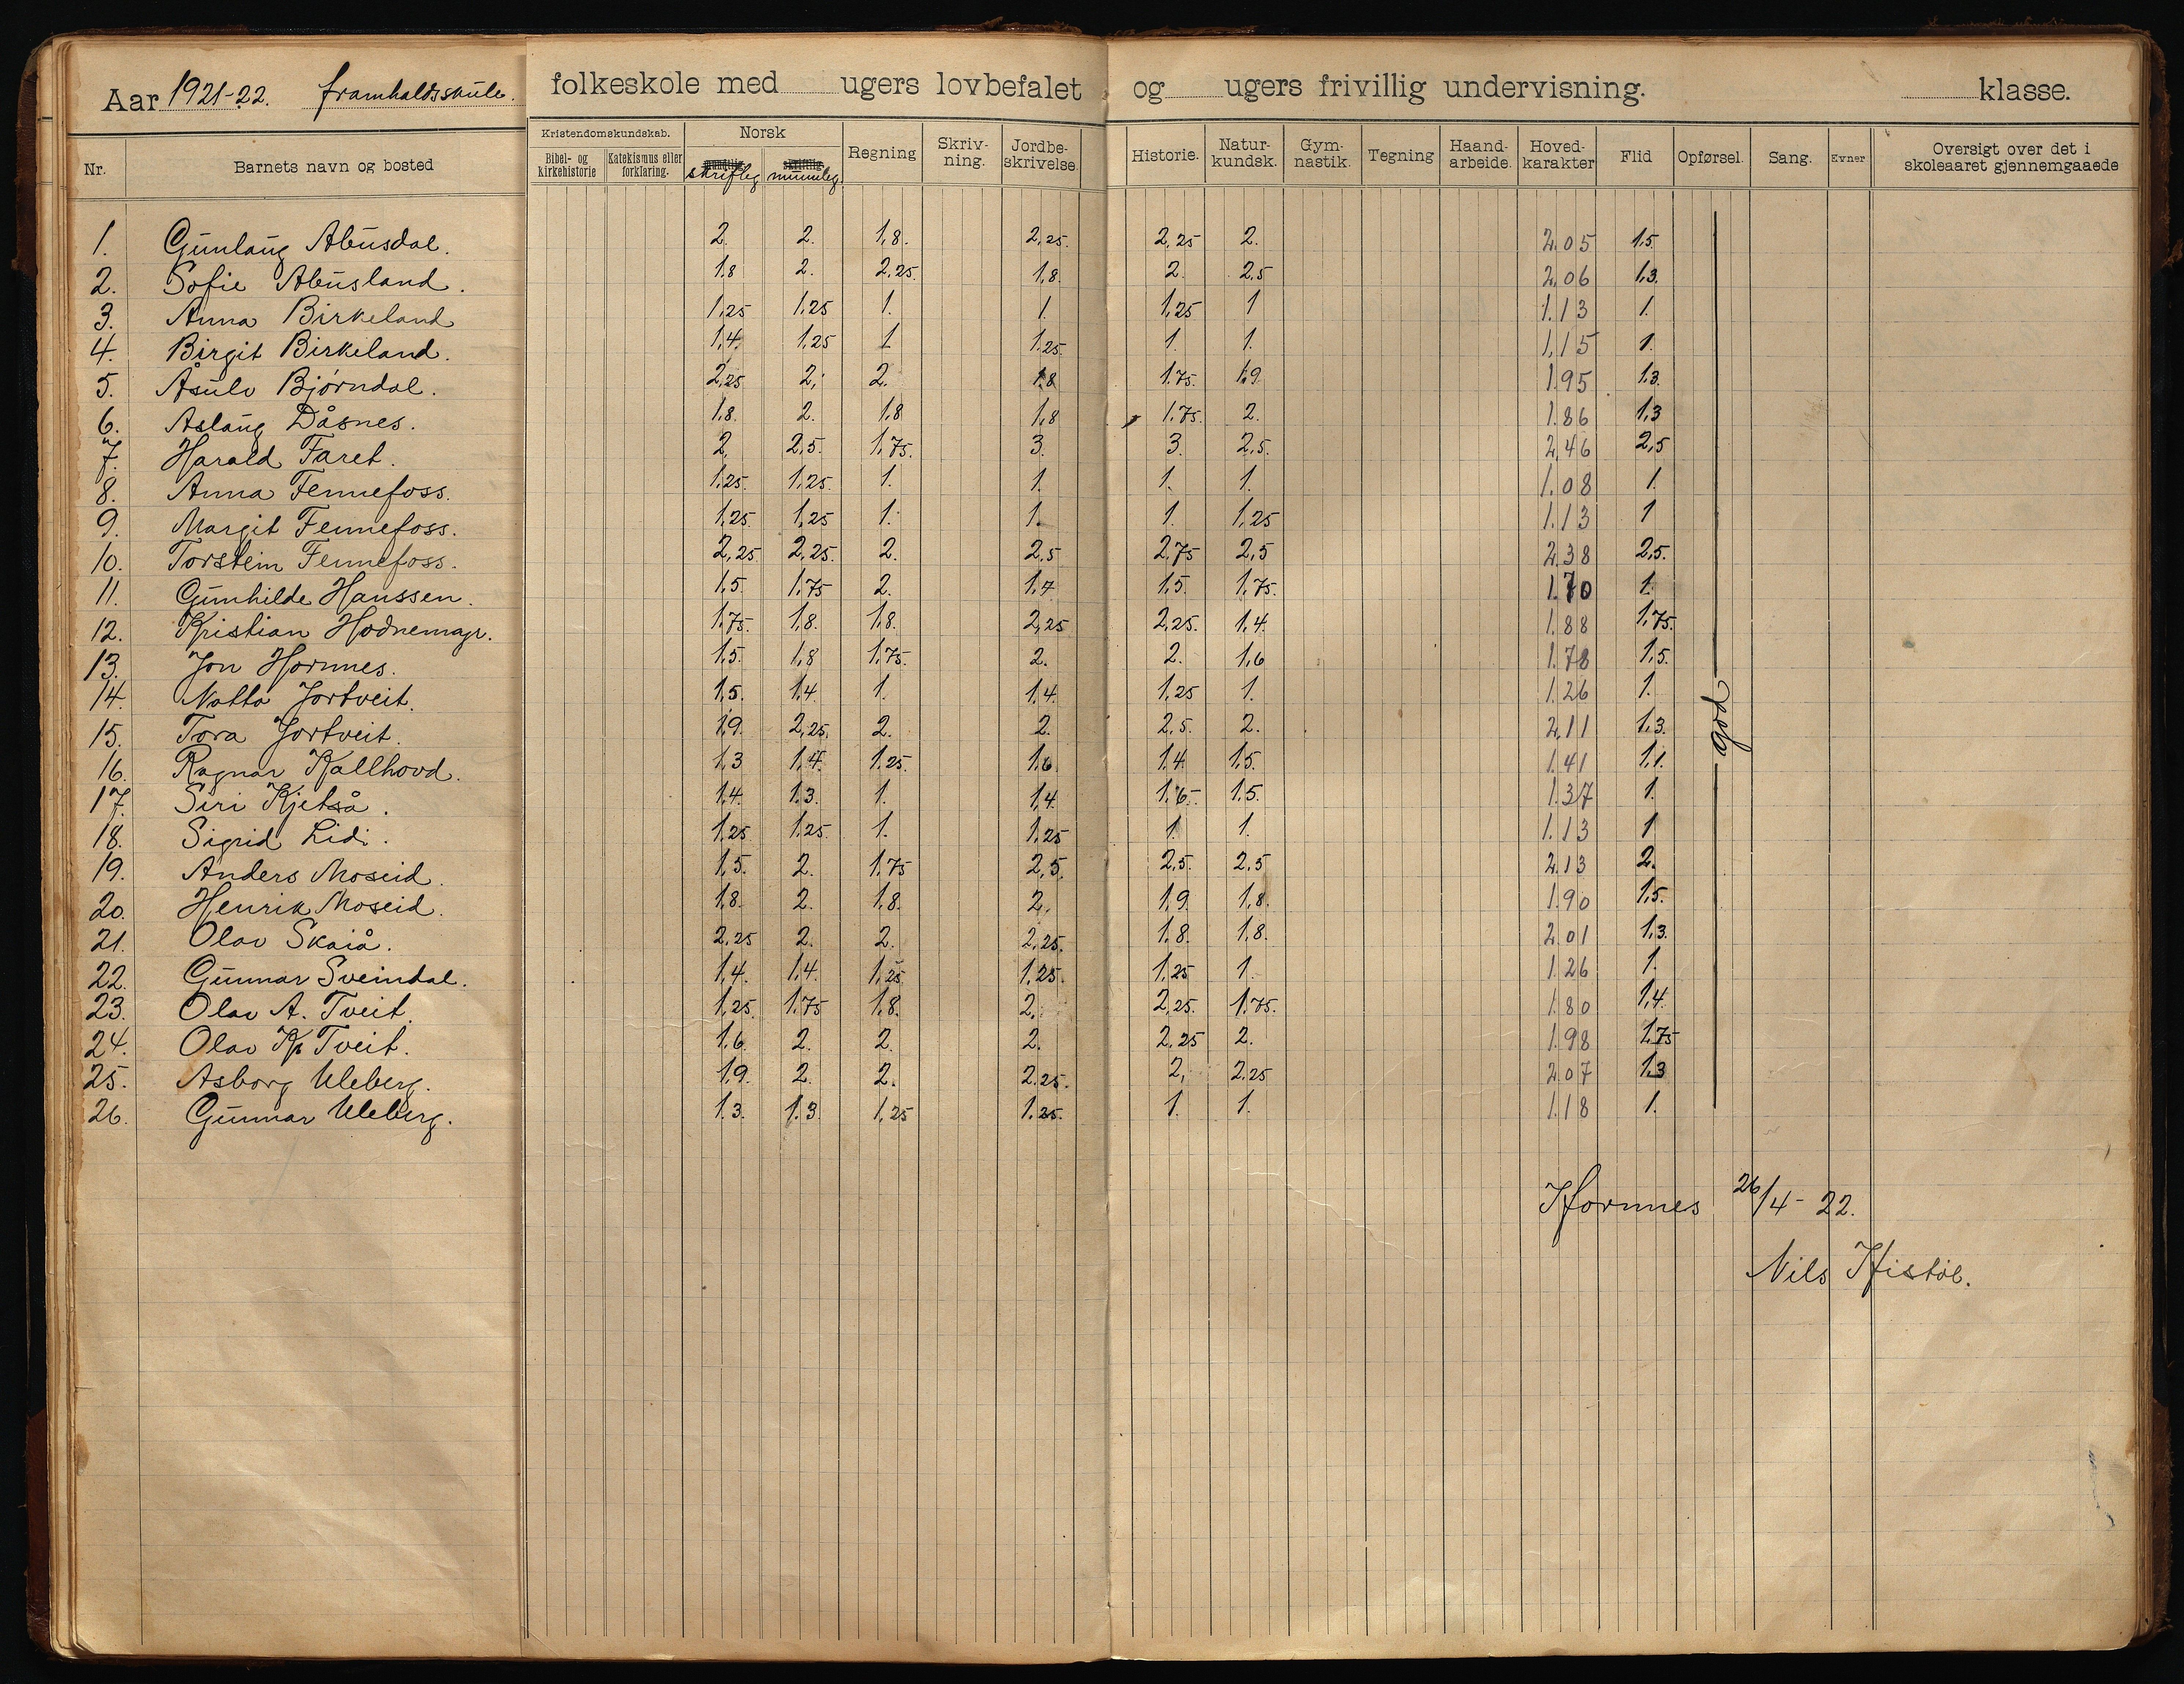 Aar 1921-22. framhaldsskule. folkeskole med ugers lovbefalet og ugers frivillig undervisning. klasse.
Nr. Barnets navn og bosted Kristendomskundskab. Bibel- og kirkehistorie Katekismus eller forklaring. Norsk mundtlig skriftleg skriftlig munnleg Regning Skriv-ning. Jordbe-skrivelse Historie. Natur-kundsk. Gym-nastik. Tegning Haand-arbeide. Hoved-karakter Flid Opførsel. Sang. Evner Oversigt over det i skoleaaret gjennemgaaede
1. Gunlaug Abusdal. 2. 2. 1,8. 2,25. 2,25 2. 2,05 1,5
2. Sofie Abusland. 1,8 2. 2,25. 1,8. 2. 2,5 2,06 1,3.
3. Anna Birkeland 1,25 1,25 1. 1. 1,25 1 1.13 1.
4. Birgit Birkeland. 1,4. 1,25 1 1,25. 1. 1. 1,15 1.
5. Åsulv Bjørndal. 2,25 2, 2. 1,8 1,75. 1,9 1.95 1,3.
6. Aslaug Dåsnes. 1,8. 2. 1,8 1,8 1,75. 2. 1.86 1,3
7. Harald Faret. 2, 2,5. 1,75. 3. 3. 2,5. 2,46 2,5
8. Anna Fennefoss. 1,25. 1,25. 1. 1. 1. 1. 1.08 1.
9. Margit Fennefoss. 1,25 1,25 1. 1. 1. 1,25 1.13 1
10. Torstein Fennefoss. 2,25 2,25. 2. 2,5 2,75 2,5 2.38 2,5.
11. Gunhilde Hanssen. 1,5. 1,75 2. 1,7 1,5. 1,75. 1.70 1.
12. Kristian Hodnemayr. 1,75. 1,8. 1,8. 2,25 2,25. 1,4. 1.88 1,75.
13. Jon Hornnes. 1,5. 1,8 1,75. 2. 2. 1,6 1.78 1,5.
14. Notto Jortveit. 1,5. 1,4 1. 1,4. 1,25 1. 1.26 1.
15. Tora Jortveit. 1,9. 2,25. 2. 2. 2,5. 2. 2,11 1,3.
16. Ragnar Kallhovd. 1,3 1,4. 1,25. 1,6. 1,4. 1,5. 1.41 1,1.
17. Siri Kjetså. 1,4. 1,3. 1. 1,4 1,6. 1,5. 1.37 1.
18. Sigrid Lidi. 1,25 1,25. 1. 1,25 1. 1. 1.13 1
19. Anders Moseid. 1,5. 2. 1,75 2,5. 2,5. 2,5 2.13 2.
20. Henrik Moseid. 1,8. 2. 1,8. 2, 1,9. 1,8. 1.90 1,5.
21. Olav Skaiå. 2,25 2. 2. 2,25. 1,8. 1,8. 2.01 1,3.
22. Gunnar Sveindal. 1,4. 1,4. 1,25 1,25. 1,25 1. 1.26 1.
23. Olav A. Tveit. 1,25. 1,75 1,8. 2. 2,25. 1,75. 1.80 1,4.
24. Olav K. Tveit. 1,6. 2. 2. 2. 2,25 2. 1.98 1,75
25. Asborg Uleberg. 1,9. 2. 2. 2.25. 2, 2.25 2.07 1,3
26. Gunnar Uleberg. 1.3. 1.3. 1,25 1.25. 1. 1. 1.18 1.
god
Hornnes 26/4-22.
Nils Histøl.